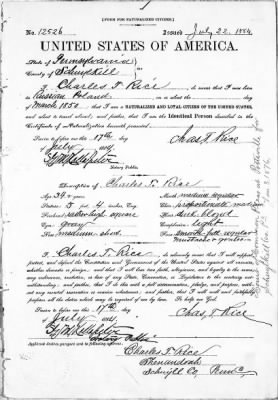 [FORM FOR NATURALIZED CITIZEN.]
No. 12526 Issued July 22, 1884
UNITED STATES OF AMERICA.
State of Pennsylvania
County of Schuylkill
I, Charles T. Rice, do swear that I was born
in Russian Poland on or about the day
of March 1850; that I am a NATURALIZED AND LOYAL CITIZEN OF THE UNITED STATES,
and about to travel abroad; and further, that I am the Identical Person described in the
Certificate of Naturalization herewith presented.
Sworn to before me this 17th Chas. T. Rice
day of July 1884
Notary Public.
Description of Charles T. Rice
Age: 34 years Mouth: medium
Stature: 5 feet 4 inches, Eng. Chin:
Forehead: square Hair: dark
Eyes: grey Complexion: light
Nose: medium Face: smooth full
I, Charles T. Rice, do solemnly swear that I will support,
protect, and defend the Constitution and Government of the United States against all enemies,
whether domestic or foreign; and that I will bear true faith, allegiance, and loyalty to the same,
any ordinance, resolution, or law of any State, Convention, or Legislature to the contrary notwithstanding;
and further, that I do this with a full determination, pledge, and purpose, without
any mental reservation or evasion whatsoever; and further, that I will well and faithfully
perform all the duties which may be required of me by law: So help me God.
Sworn to before me this 17th Chas. T. Rice
day of July 1884
Notary Public
Applicant desires passport sent to following address:
Charles T. Rice
Shenandoah
Schuylkill Co. Penn'a